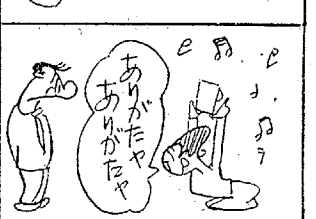 ありがたや
ありがたや